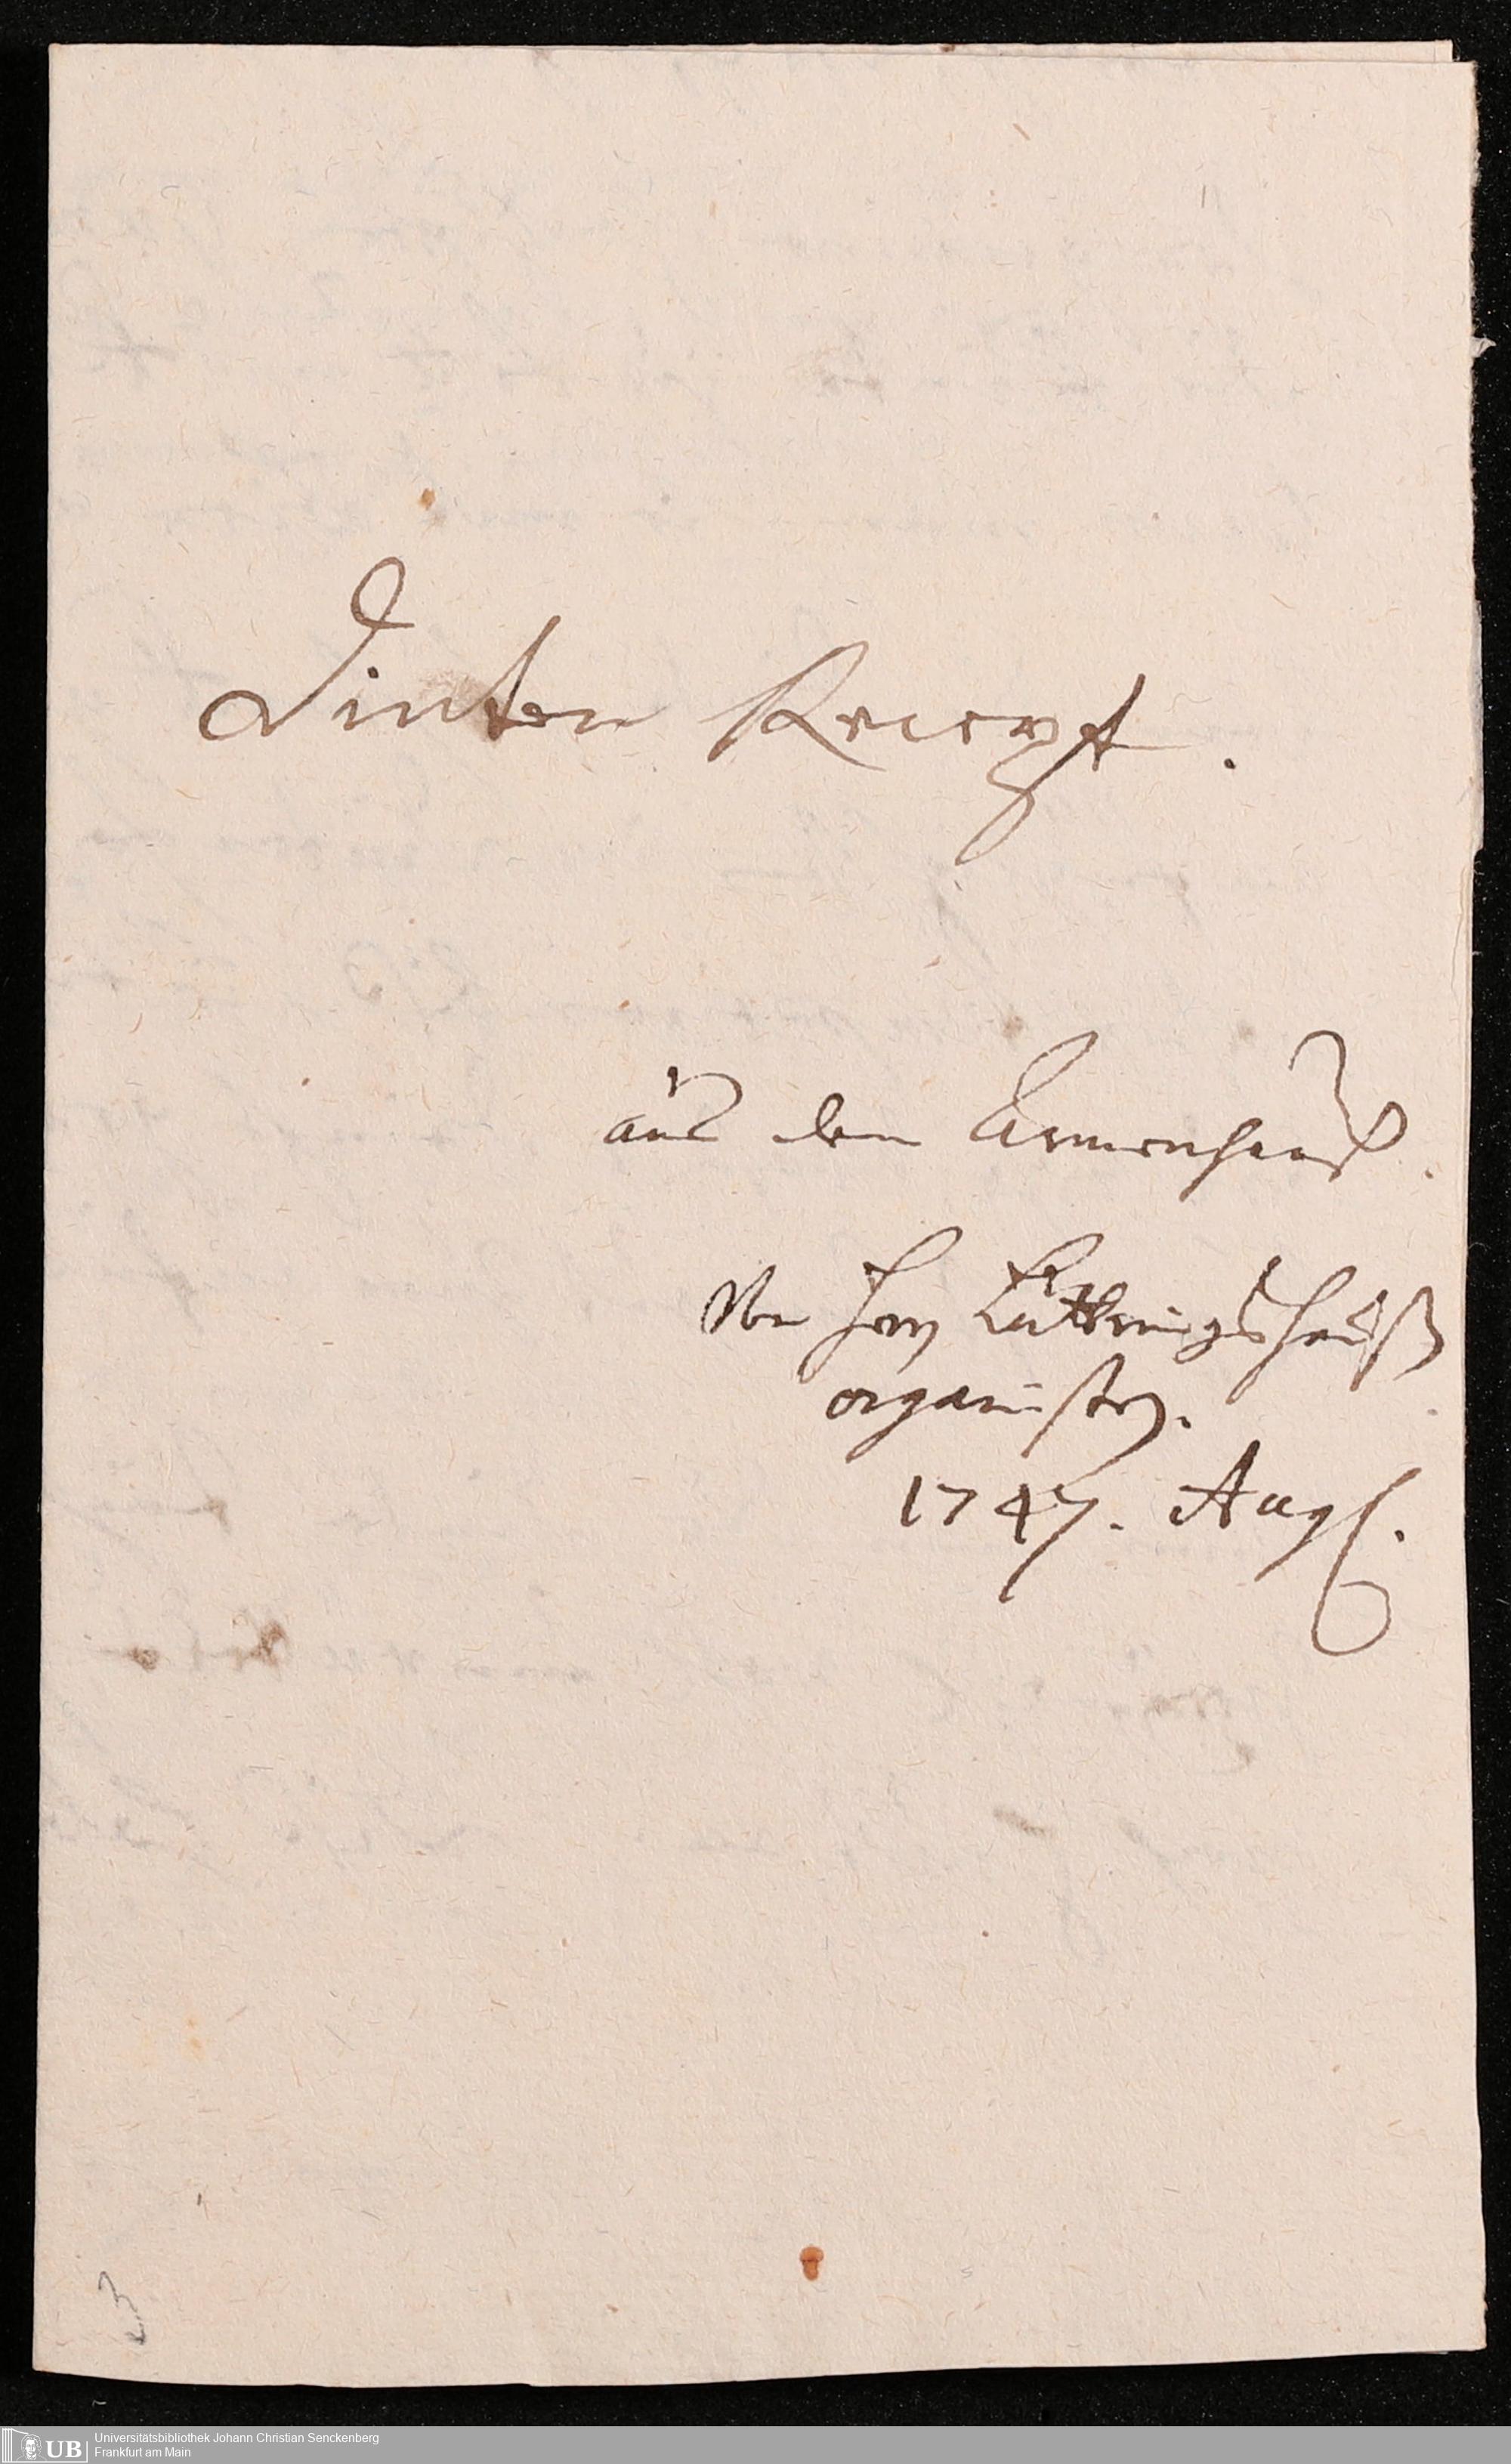 Dinten Recept.
aus dem Armenhauß.
Von Herrn
organisten.
1747. Aug.
3
UB
Universitätsbibliothek Johann Christian Senckenberg
Frankfurt am Main